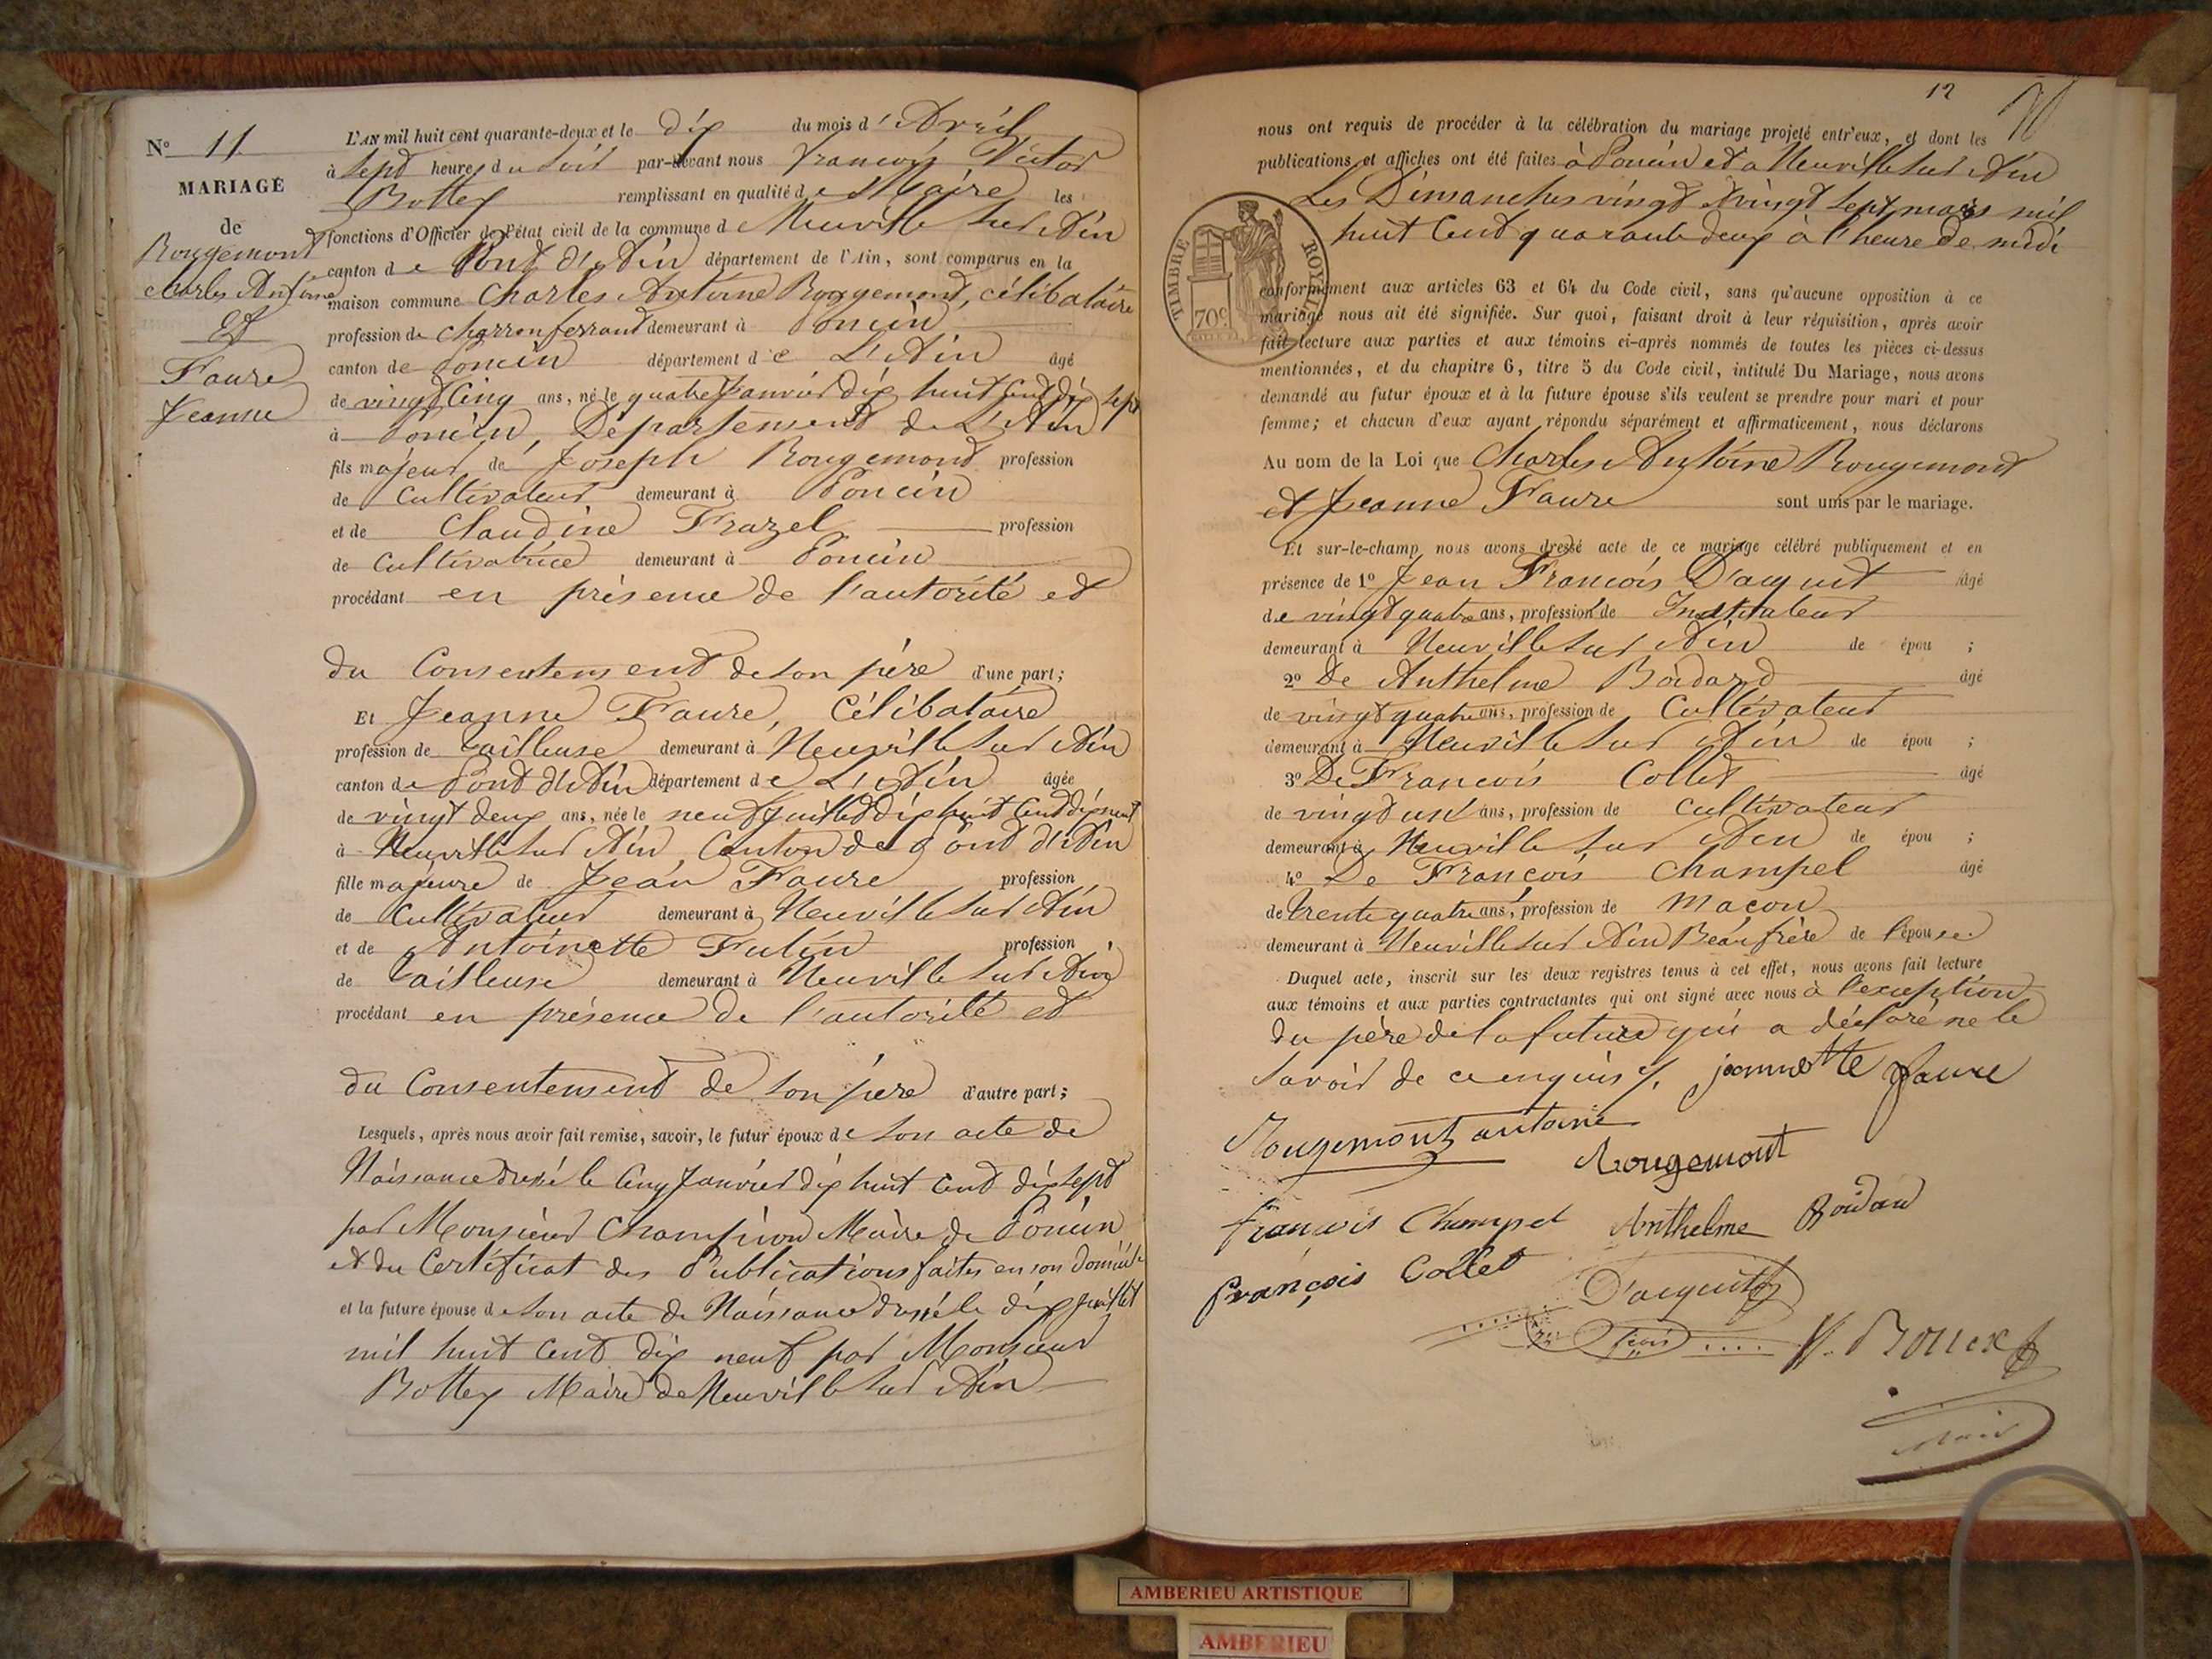 N° 11
MARIAGE
de
Rougemont
Charles Antoine
Et
Faure
Jeanne
L'AN mil huit cent quarante-deux et le dix du mois d'Avril
à sept heures du soir par-devant nous François Victor
Bottex remplissant en qualité de Maire les
fonctions d'Officier de l'état civil de la commune d Neuville sur Ain
canton de Pont d'Ain département de l'Ain, sont comparus en la
maison commune Charles Antoine Rougemont, célibataire
profession de charron ferrant demeurant à Poncin
canton de Poncin département de L'Ain âgé
de vingt cinq ans, né le quatre Janvier dix huit cent dix sept
à Poncin, Département de L'Ain
fils majeur de Joseph Rougemont profession
de Cultivateur demeurant à Poncin
et de Claudine Frazel profession
de Cultivatrice demeurant à Poncin
procédant en présence de l'autorité et
du Consentement de son père d'une part;
Et Jeanne Faure, Célibataire
profession de Tailleuse demeurant à Neuville sur Ain
canton de Pont d'Ain département de L'Ain âgée
de vingt deux ans, née le neuf Juillet dix huit cent dix neuf
à Neuville sur Ain, Canton de Pont d'Ain
fille majeure de Jean Faure profession
de Cultivateur demeurant à Neuville sur Ain
et de Antoinette Fulin profession
de Tailleuse demeurant à Neuville sur Ain
procédant en présence de l'autorité et
du Consentement de son père d'autre part;
Lesquels, après nous avoir fait remise, savoir, le futur époux de son acte de
Naissance dressé le cinq Janvier dix huit cent dix sept
par Monsieur Champion Maire de Poncin
et du Certificat des Publications faites en son Domicile
et la future épouse de son acte de Naissance dressé le dix Juillet
mil huit cent dix neuf par Monsieur
Bottex Maire de Neuville sur Ain
12
nous ont requis de procéder à la célébration du mariage projeté entr'eux, et dont les
publications et affiches ont été faites à Poncin et a Neuville sur Ain
Les Dimanches vingt et vingt sept mars mil
huit Cent quarante deux à l'heure de midi
TIMBRE ROYAL
70c
conformément aux articles 63 et 64 du Code civil, sans qu'aucune opposition à ce
mariage nous ait été signifiée. Sur quoi, faisant droit à leur réquisition, après avoir
fait lecture aux parties et aux témoins ci-après nommés de toutes les pièces ci-dessus
mentionnées, et du chapitre 6, titre 5 du Code civil, intitulé Du Mariage, nous avons
demandé au futur époux et à la future épouse s'ils veulent se prendre pour mari et pour
femme; et chacun d'eux ayant répondu séparément et affirmativement, nous déclarons
Au nom de la Loi que Charles Antoine Rougemont
et Jeanne Faure sont unis par le mariage.
Et sur-le-champ nous avons dressé acte de ce mariage célébré publiquement et en
présence de 1° Jean François D'acquit âgé
de vingt quatre ans, profession de Instituteur
demeurant à Neuville sur Ain de épou ;
2° De Anthelme Boidard âgé
de vingt quatre ans, profession de Cultivateur
demeurant à Neuville sur Ain de épou ;
3° De François Collet âgé
de vingt un ans, profession de cultivateur
demeurant à Neuville sur Ain de épou ;
4° De François Champel âgé
de trente quatre ans, profession de Maçon
demeurant à Neuville sur Ain Beau frère de l'épouse
Duquel acte, inscrit sur les deux registres tenus à cet effet, nous avons fait lecture
aux témoins et aux parties contractantes qui ont signé avec nous à l'exception
du père de la future qui a déclaré ne le
savoir de ce enquis /. jeannette faure
Rougemont antoine
Rougemont
françois Champel Anthelme Boidard
françois Collet
D'acquit
V. Bottex
Maire
AMBERIEU ARTISTIQUE
AMBERIEU